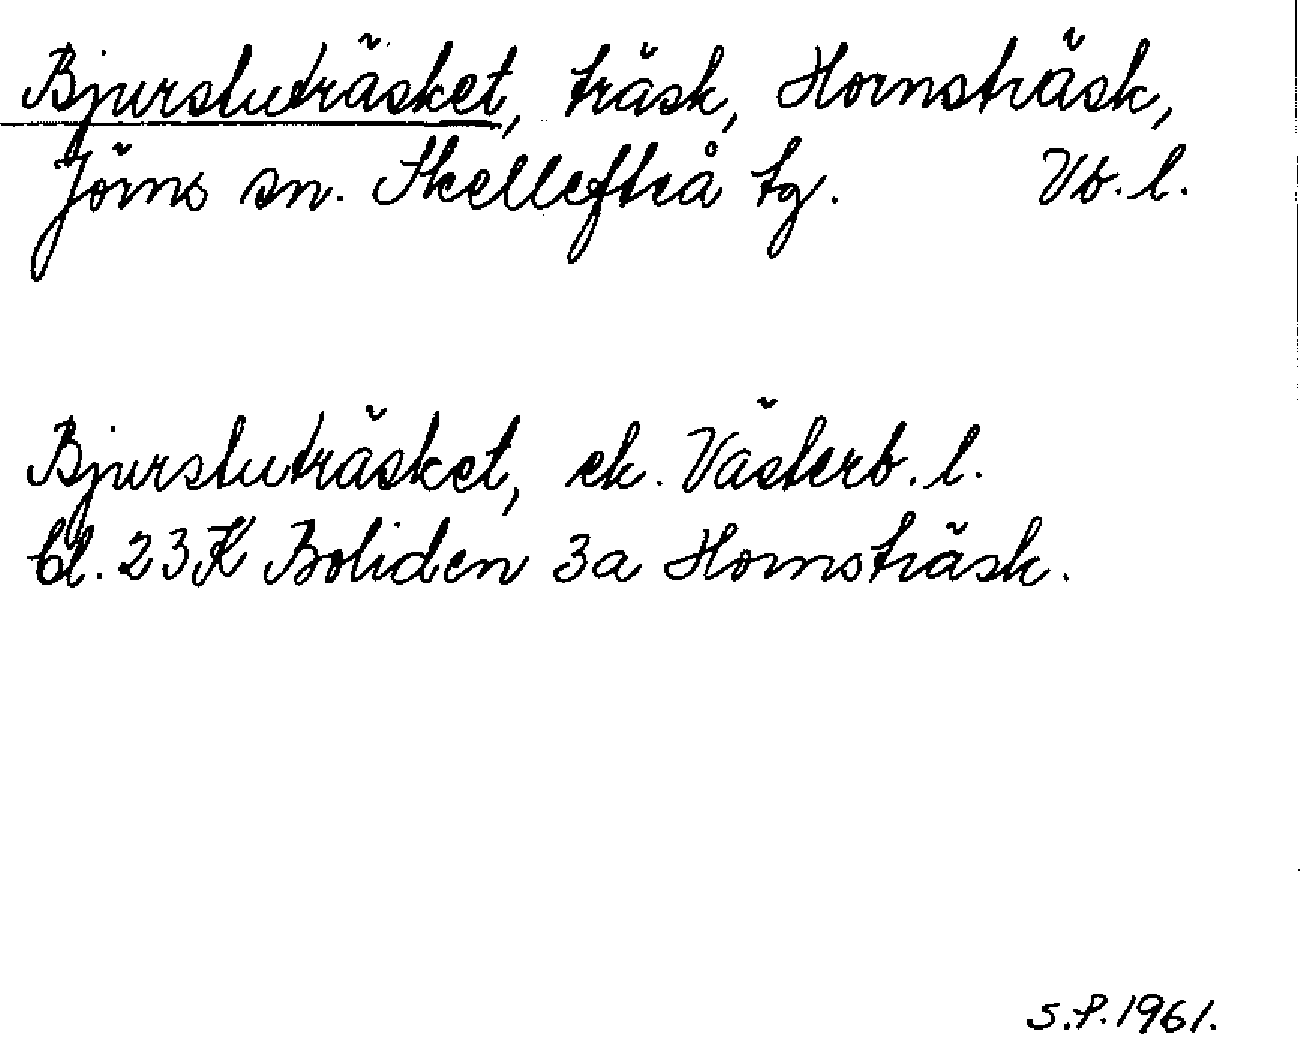 Bjursluträsket, träsk, Hornsträsk,
Jörns sn. Skellefteå tg. Vb. l.
Bjursluträsket, ek. Västerb. l.
bl. 23K Boliden 3a Hornsträsk.
S.P. 1961.